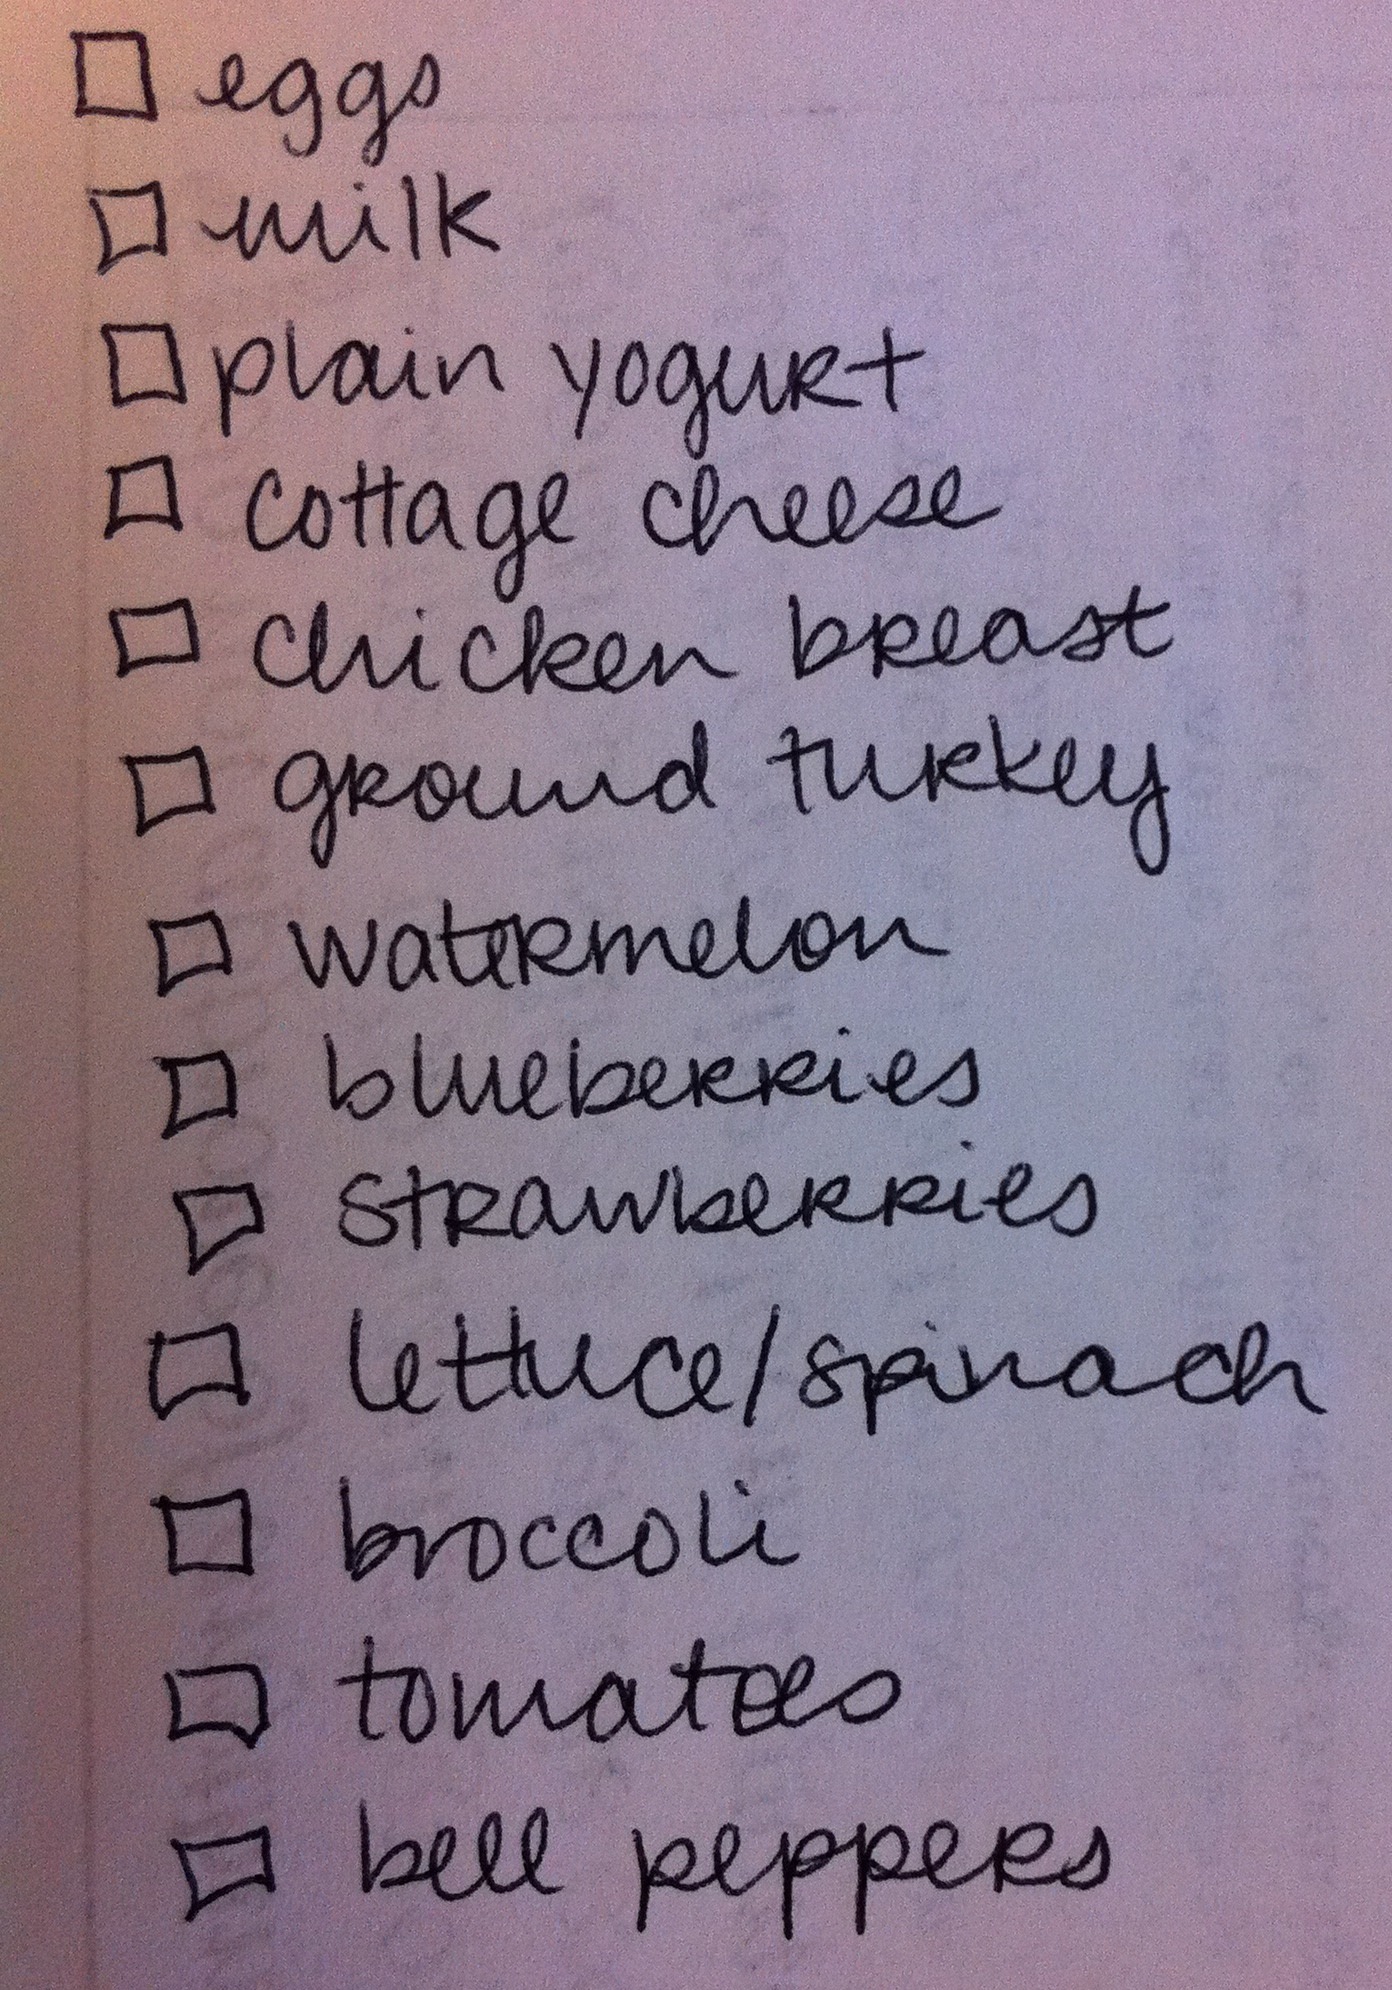 eggs
milk
plain yogurt
cottage cheese
chicken breast
ground turkey
watermelon
blueberries
strawberries
lettuce/spinach
broccoli
tomatoes
bell peppers